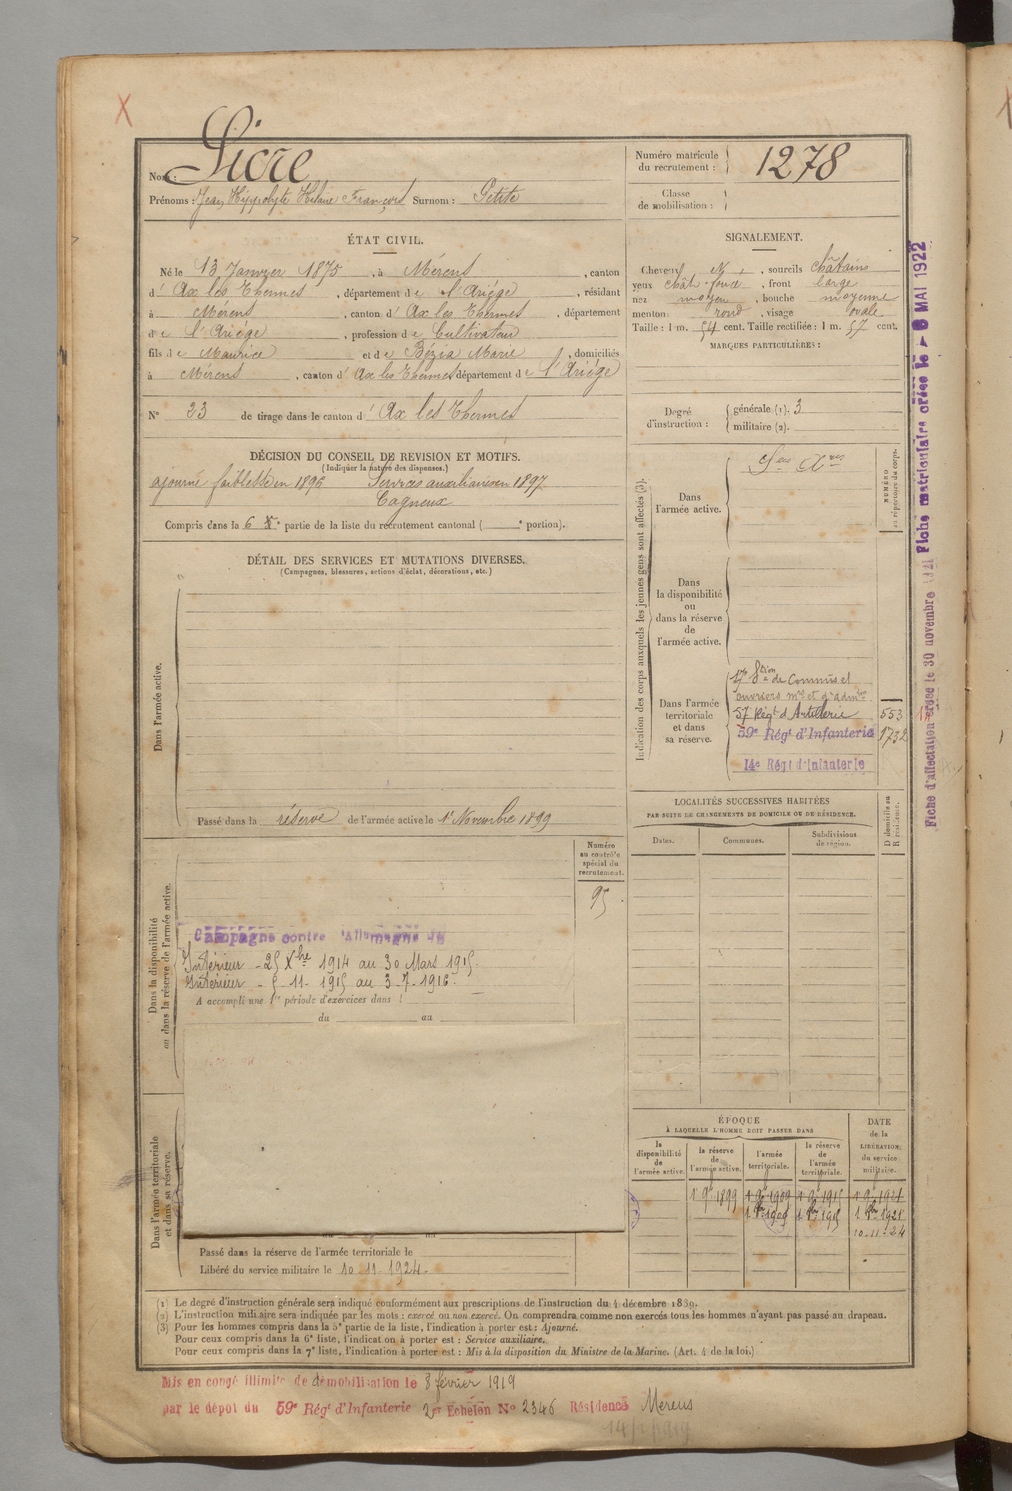 X
Nom : Sicre
Prénoms : Jean Hippolyte Hilaire François Surnom : Petite
Numéro matricule du recrutement : 1278
Classe de mobilisation :
ÉTAT CIVIL.
Né le 13 Janvier 1875, à Mérens, canton
d' Ax les Thermes, département de l'Ariége, résidant
à Mérens, canton d' Ax les Thermes, département
de l'Ariége, profession de Cultivateur
fils de Maurice et de Bézia Marie, domiciliés
à Mérens, canton d' Ax les Thermes département de l'Ariége
N° 23 de tirage dans le canton d' Ax les Thermes
SIGNALEMENT.
Cheveux et, sourcils châtains
yeux chât. foncé, front large
nez moyen, bouche moyenne
menton rond, visage ovale
Taille : 1 m. 54 cent. Taille rectifiée : 1 m. 57 cent.
MARQUES PARTICULIÈRES :
Degré d'instruction : générale (1). 3
militaire (2).
DÉCISION DU CONSEIL DE REVISION ET MOTIFS.
(Indiquer la nature des dispenses.)
ajourné faiblesse en 1896 Services auxiliaires en 1897
Cagneux
Compris dans la 6e partie de la liste du recrutement cantonal ( e portion).
DÉTAIL DES SERVICES ET MUTATIONS DIVERSES.
(Campagnes, blessures, actions d'éclat, décorations, etc.)
Dans l'armée active.
Passé dans la réserve de l'armée active le 1er Novembre 1899
Indication des corps auxquels les jeunes gens sont affectés (3).
NUMÉRO au répertoire du corps.
Dans l'armée active.
Sces Axres
Dans la disponibilité ou dans la réserve de l'armée active.
Dans l'armée territoriale et dans sa réserve.
17e Stion de Commis et
ouvriers mres et d'admon
57 Régt d'Artillerie 553
59e Régt d'Infanterie 1732
14e Régt d'Infanterie
LOCALITÉS SUCCESSIVES HABITÉES
PAR SUITE DE CHANGEMENTS DE DOMICILE OU DE RÉSIDENCE.
Dates. Communes. Subdivisions de région.
D domicile ou R résidence.
Dans la disponibilité ou dans la réserve de l'armée active.
Numéro au contrôle spécial du recrutement.
95
Campagne contre l'Allemagne
Intérieur - 25 Xbre 1914 au 30 Mars 1915.
Intérieur - 5-11-1915 au 3-7-1916.
A accompli une 1re période d'exercices dans l
du au
Dans l'armée territoriale et dans sa réserve.
Passé dans la réserve de l'armée territoriale le
Libéré du service militaire le 10-11-1924.
ÉPOQUE
À LAQUELLE L'HOMME DOIT PASSER DANS
la disponibilité de l'armée active.
la réserve de l'armée active.
l'armée territoriale.
la réserve de l'armée territoriale.
DATE de la LIBÉRATION du service militaire.
1 9bre 1899 1 9bre 1909 1 9bre 1915 1 9bre 1921
1 8bre 1909 1 8bre 1915 1 8bre 1921
10-11-24
(1) Le degré d'instruction générale sera indiqué conformément aux prescriptions de l'instruction du 4 décembre 1889.
(2) L'instruction militaire sera indiquée par les mots : exercé ou non exercé. On comprendra comme non exercés tous les hommes n'ayant pas passé au drapeau.
(3) Pour les hommes compris dans la 5e partie de la liste, l'indication à porter est : Ajourné.
Pour ceux compris dans la 6e liste, l'indication à porter est : Service auxiliaire.
Pour ceux compris dans la 7e liste, l'indication à porter est : Mis à la disposition du Ministre de la Marine. (Art. 4 de la loi.)
Mis en congé illimité de démobilisation le 8 février 1919
par le dépôt du 59e Régt d'Infanterie 2er Echelon N° 2346 Résidence Mérens
Fiche d'affectation créée le 30 novembre 1921 Fiche matriculaire créée le - 6 MAI 1922